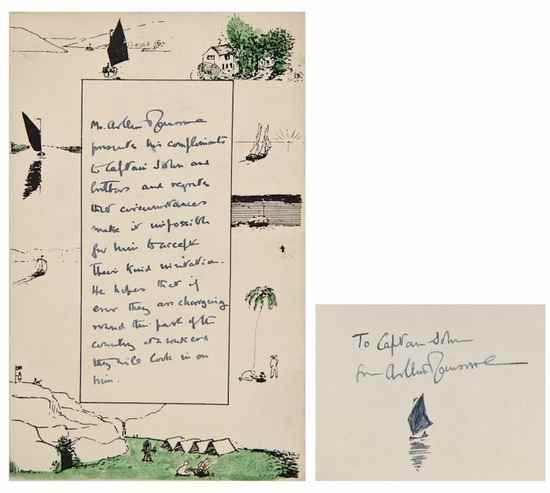 Mr. Arthur Ransome
presents his compliments
to Captain John and
brothers and regrets
that circumstances
make it impossible
for him to accept
their kind invitation.
He hopes that if
ever they are
round this part of the
country at
they will look in on
him.
To Captain John
from Arthur Ransome